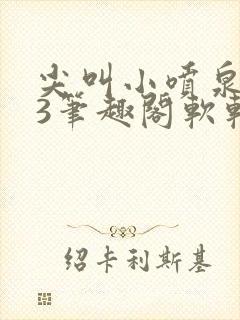 尖叫小喷泉
3筆趣閣軟
绍卡利斯基